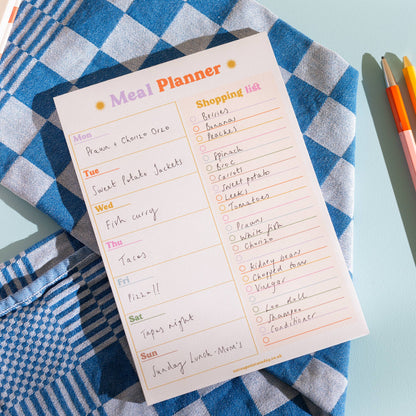 Meal Planner
Mon
Prawn + Chorizo Orzo
Tue
Sweet Potato Jackets
Wed
Fish curry
Thu
Tacos
Fri
Pizza!!
Sat
Tapas night
Sun
Sunday Lunch - Mom's
Shopping list
Berries
Bananas
Peaches
Spinach
Broc
Carrots
Sweet potato
Leeks
Tomatoes
Prawns
White fish
Chorizo
Kidney beans
Chopped toms
Vinegar
Loo roll
Shampoo
Conditioner